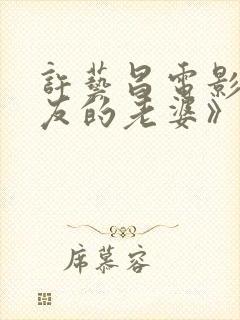 許藝昌電影
友的老婆》
席慕容